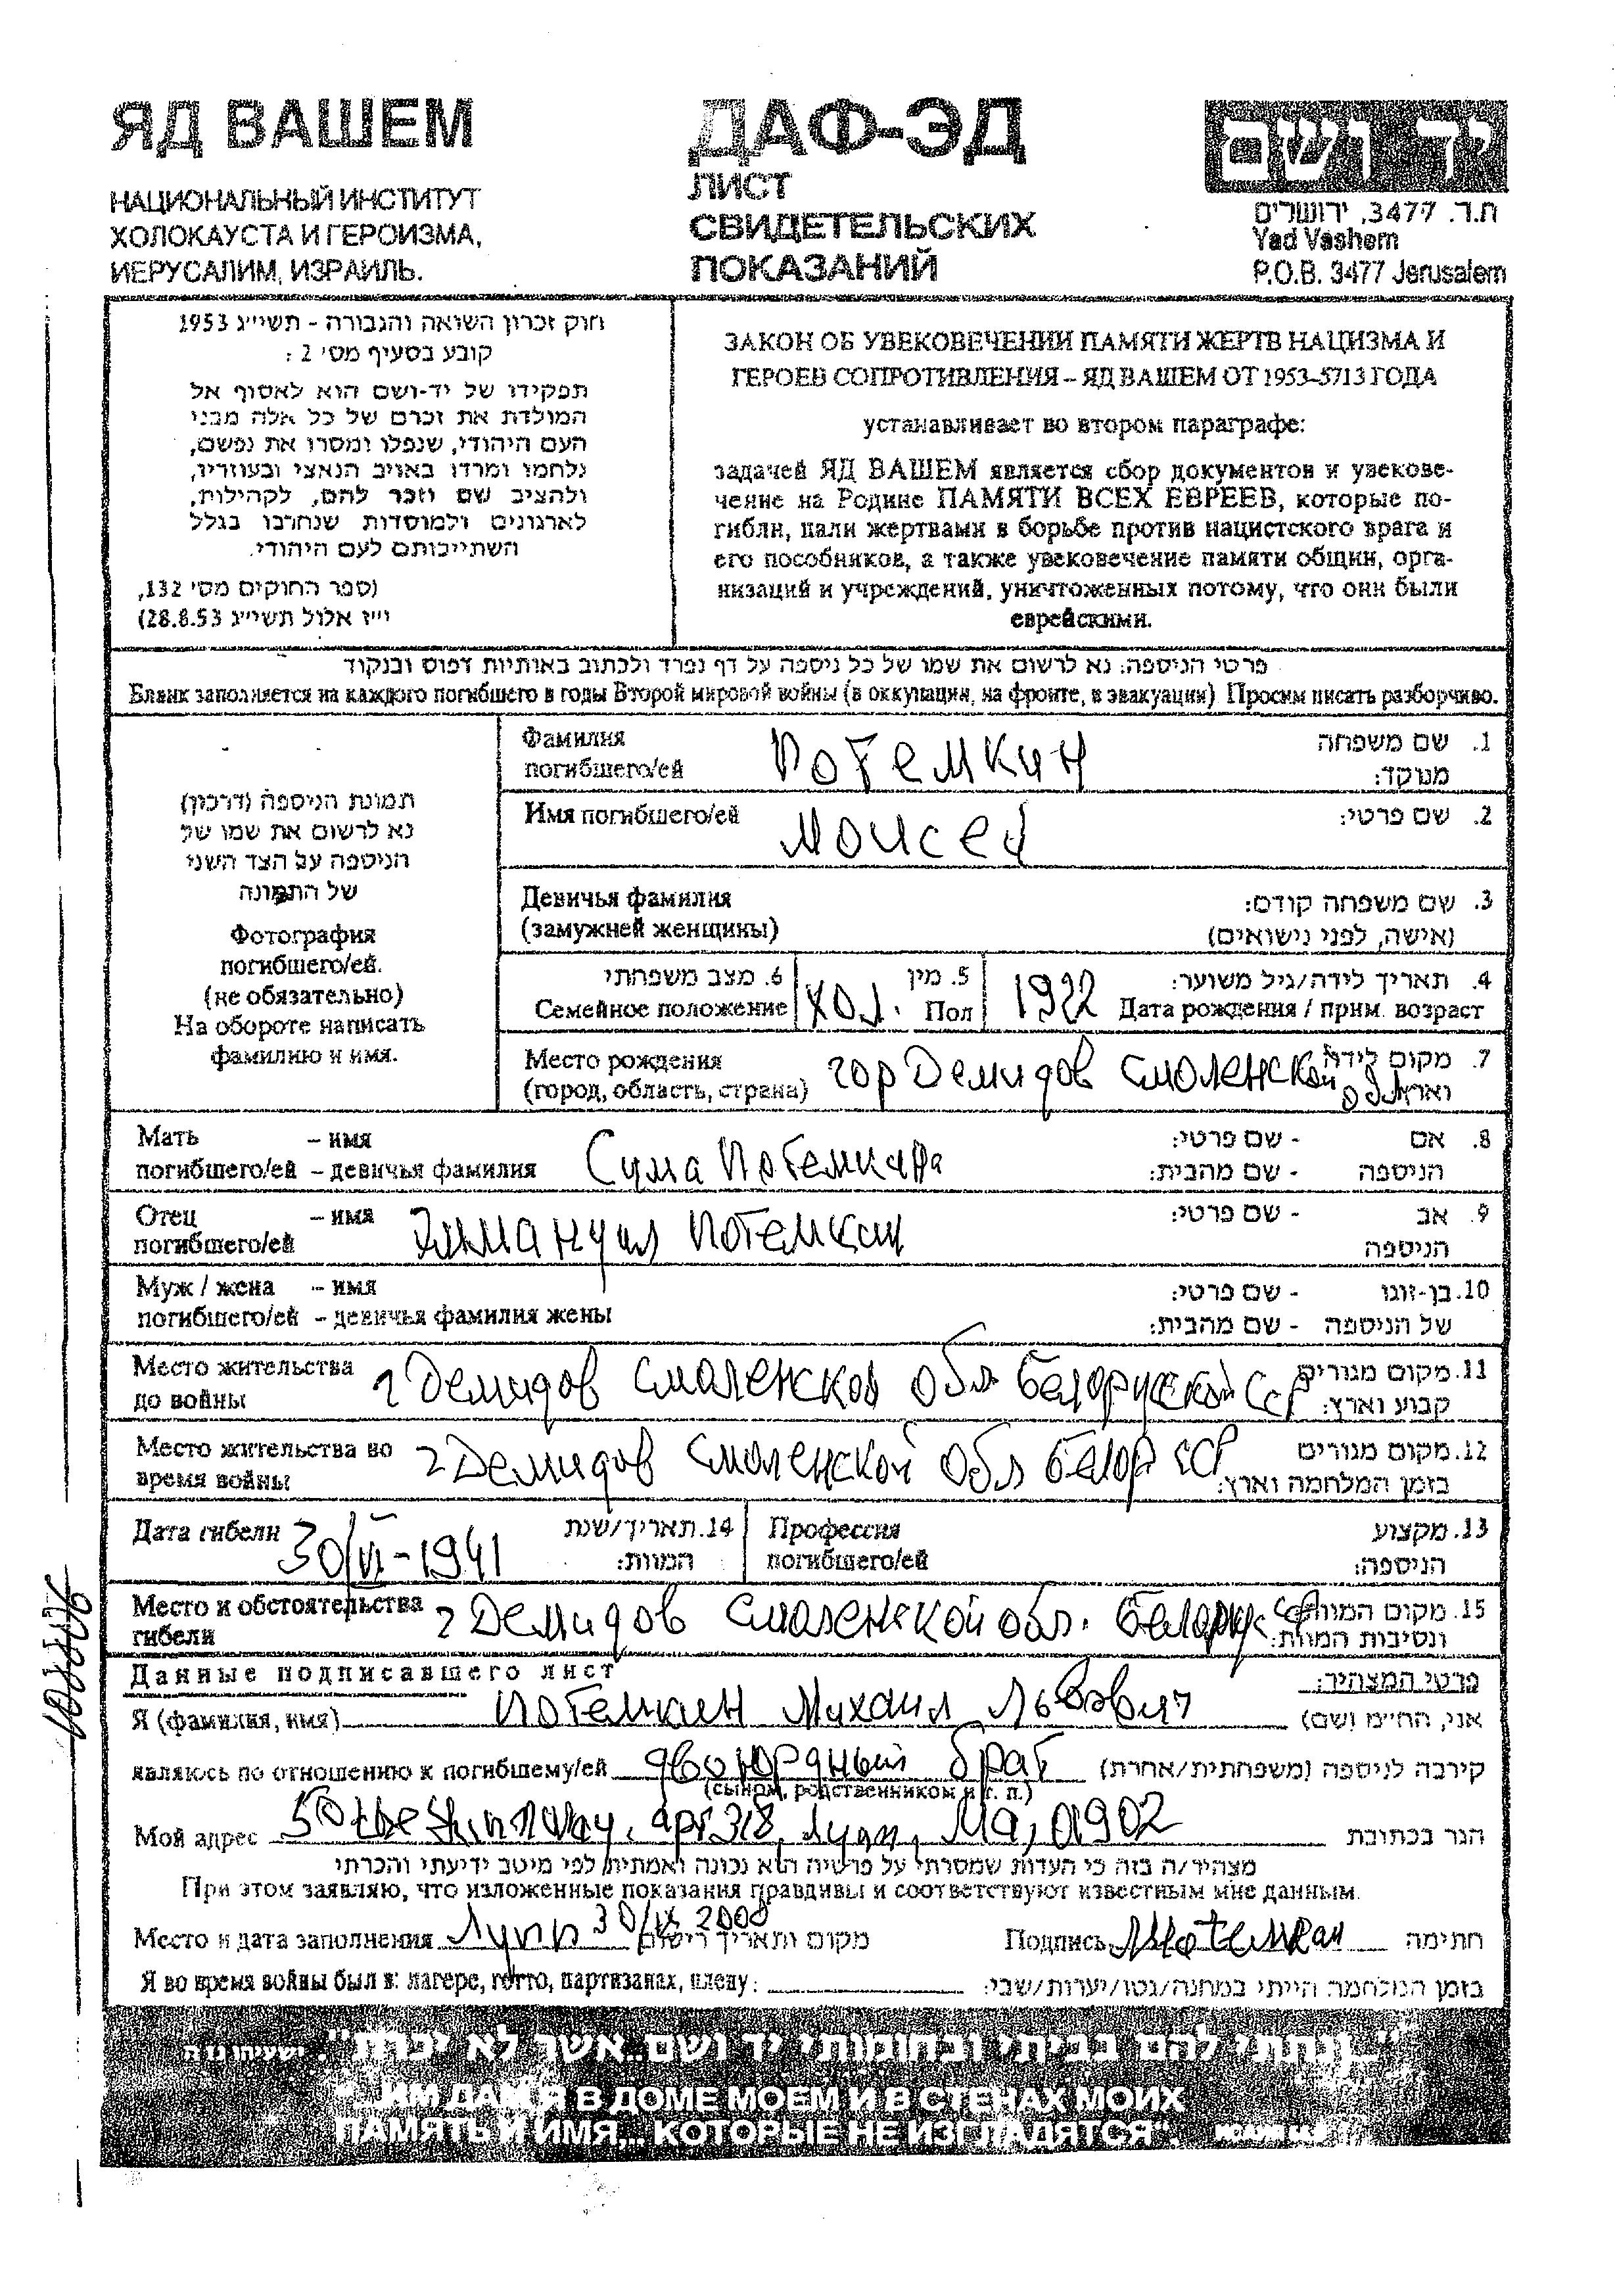 ЯД ВАШЕМ
НАЦИОНАЛЬНЫЙ ИНСТИТУТ
ХОЛОКАУСТА И ГЕРОИЗМА,
ИЕРУСАЛИМ, ИЗРАИЛЬ.
ДАФ-ЭД
ЛИСТ
СВИДЕТЕЛЬСКИХ
ПОКАЗАНИЙ
יד ושם
ת.ד. 3477, ירושלים
Yad Vashem
P.O.B. 3477 Jerusalem
חוק זכרון השואה והגבורה - תשי״ג 1953
קובע בסעיף מס׳ 2 :
תפקידו של יד-ושם הוא לאסוף אל
המולדת את זכרם של כל אלה מבני
העם היהודי, שנפלו ומסרו את נפשם,
נלחמו ומרדו באויב הנאצי ובעוזריו,
ולהציב שם וזכר להם, לקהילות,
לארגונים ולמוסדות שנחרבו בגלל
השתייכותם לעם היהודי.
(ספר החוקים מס׳ 132,
י״ז אלול תשי״ג 28.8.53)
ЗАКОН ОБ УВЕКОВЕЧЕНИИ ПАМЯТИ ЖЕРТВ НАЦИЗМА И
ГЕРОЕВ СОПРОТИВЛЕНИЯ – ЯД ВАШЕМ ОТ 1953–5713 ГОДА
устанавливает во втором параграфе:
задачей ЯД ВАШЕМ является сбор документов и увекове-
чение на Родине ПАМЯТИ ВСЕХ ЕВРЕЕВ, которые по-
гибли, пали жертвами в борьбе против нацистского врага и
его пособников, а также увековечение памяти общин, орга-
низаций и учреждений, уничтоженных потому, что они были
еврейскими.
פרטי הניספה: נא לרשום את שמו של כל ניספה על דף נפרד ולכתוב באותיות דפוס ובנקוד
Бланк заполняется на каждого погибшего в годы Второй мировой войны (в оккупации, на фронте, в эвакуации). Просим писать разборчиво.
תמונת הניספה (דרכון)
נא לרשום את שמו של
הניספה על הצד השני
של התמונה
Фотография
погибшего/ей.
(не обязательно)
На обороте написать
фамилию и имя.
Фамилия
погибшего/ей Потемкин 1. שם משפחה
מנוקד:
Имя погибшего/ей Моисей 2. שם פרטי:
Девичья фамилия 3. שם משפחה קודם:
(замужней женщины) (אישה, לפני נישואים)
6. מצב משפחתי 5. מין 4. תאריך לידה/גיל משוער:
Семейное положение хол. Пол 1922 Дата рождения / прим. возраст
Место рождения 7. מקום לידה
(город, область, страна) гор Демидов Смоленской обл
Мать – имя 8. אם - שם פרטי:
погибшего/ей – девичья фамилия Сима Потемкина הניספה - שם מהבית:
Отец – имя 9. אב - שם פרטי:
погибшего/ей Эммануил Потемкин הניספה
Муж / жена – имя 10. בן-זוגו - שם פרטי:
погибшего/ей – девичья фамилия жены של הניספה - שם מהבית:
Место жительства 11. מקום מגורים
до войны г Демидов Смоленской обл Белорусской ССР קבוע וארץ:
Место жительства во 12. מקום מגורים
время войны г Демидов Смоленской обл Белор ССР בזמן המלחמה וארץ:
Дата гибели 30/VI-1941 14. תאריך/שנת המוות:
Профессия 13. מקצוע
погибшего/ей הניספה:
Место и обстоятельства 15. מקום המוות
гибели г Демидов Смоленской обл. ונסיבות המוות:
Данные подписавшего лист פרטי המצהיר:
Я (фамилия, имя) Потемкин Михаил Львович אני, הח״מ (שם)
являюсь по отношению к погибшему/ей двоюрдный брат קירבה לניספה (משפחתית/אחרת)
(сыном, родственником и т. п.)
Мой адрес apt 318, Lynn, Ma, 01902 הגר בכתובת
מצהיר/ה בזה כי העדות שמסרתי על פרטיה היא נכונה ואמתית לפי מיטב ידיעתי והכרתי
При этом заявляю, что изложенные показания правдивы и соответствуют известным мне данным.
Место и дата заполнения Линн 30/IX 2000 מקום ותאריך רישום Подпись МПотемкин חתימה
Я во время войны был в: лагере, гетто, партизанах, плену: בזמן המלחמה הייתי במחנה/גטו/יערות/שבי:
"...ונתתי להם בביתי ובחומותי יד ושם...אשר לא יכרת" ישעיהו נו ה
"...ИМ ДАМ Я В ДОМЕ МОЕМ И В СТЕНАХ МОИХ
ПАМЯТЬ И ИМЯ,... КОТОРЫЕ НЕ ИЗГЛАДЯТСЯ".